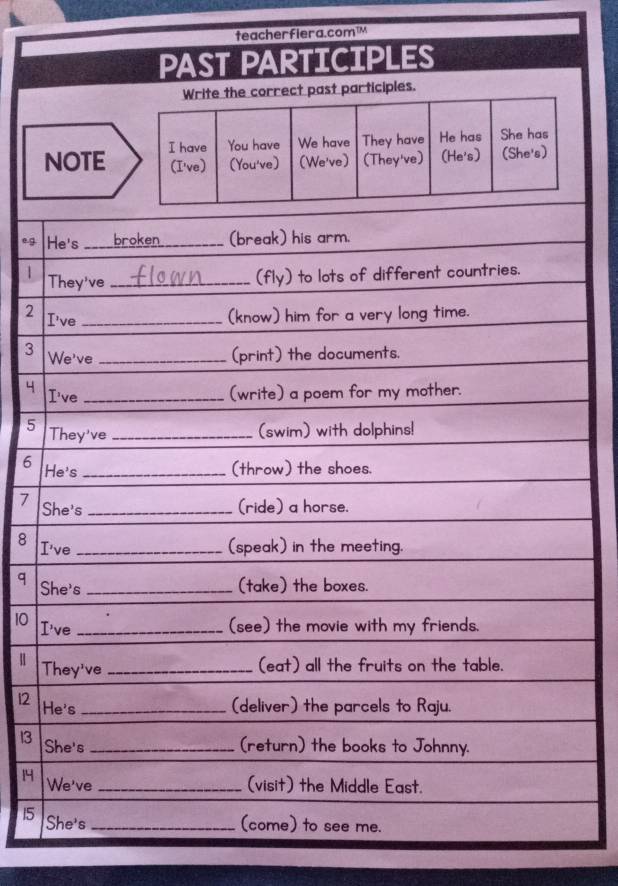 teacherfiera.com™
PAST PARTICIPLES
Write the correct past participles.
NOTE
I have You have We have They have He has She has
(I've) (You've) (We've) (They've) (He's) (She's)
e.g. He's broken (break) his arm.
1 They've flown (fly) to lots of different countries.
2 I've ____________ (know) him for a very long time.
3 We've ____________ (print) the documents.
4 I've ____________ (write) a poem for my mother.
5 They've ____________ (swim) with dolphins!
6 He's ____________ (throw) the shoes.
7 She's ____________ (ride) a horse.
8 I've ____________ (speak) in the meeting.
9 She's ____________ (take) the boxes.
10 I've ____________ (see) the movie with my friends.
11 They've ____________ (eat) all the fruits on the table.
12 He's ____________ (deliver) the parcels to Raju.
13 She's ____________ (return) the books to Johnny.
14 We've ____________ (visit) the Middle East.
15 She's ____________ (come) to see me.